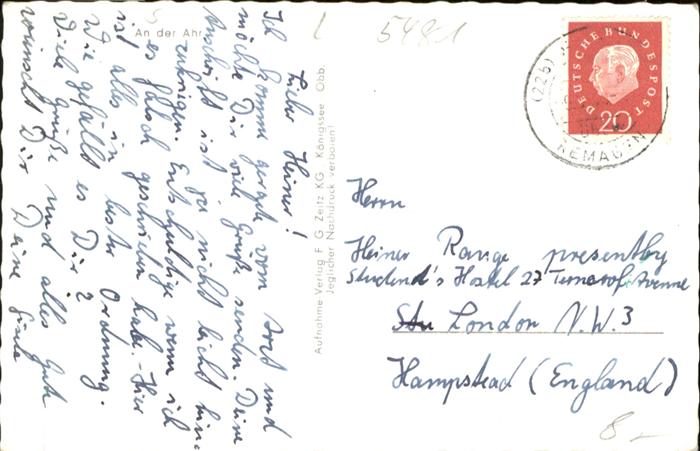 An der Ahr
5481
Lieber Heiner!
Ich komme gerade vom Arzt und
möchte Dir viele Grüße senden. Deine
Anschrift ist ja nicht leicht hin-
zukriegen. Entschuldige wenn ich
es falsch geschrieben habe. Hier
ist alles in bester Ordnung.
Wie gefällt es Dir?
Viele Grüße und alles Gute
wünscht Dir Deine
Aufnahme u. Verlag F. G. Zeitz KG. Königssee Obb.
Jeglicher Nachdruck verboten!
DEUTSCHE BUNDESPOST
20
(22b)
REMAGEN
Herrn
Heiner Range presentby
Student's Hostel 27 Avenue
London N.W.3
Hampstead (England)
8.-